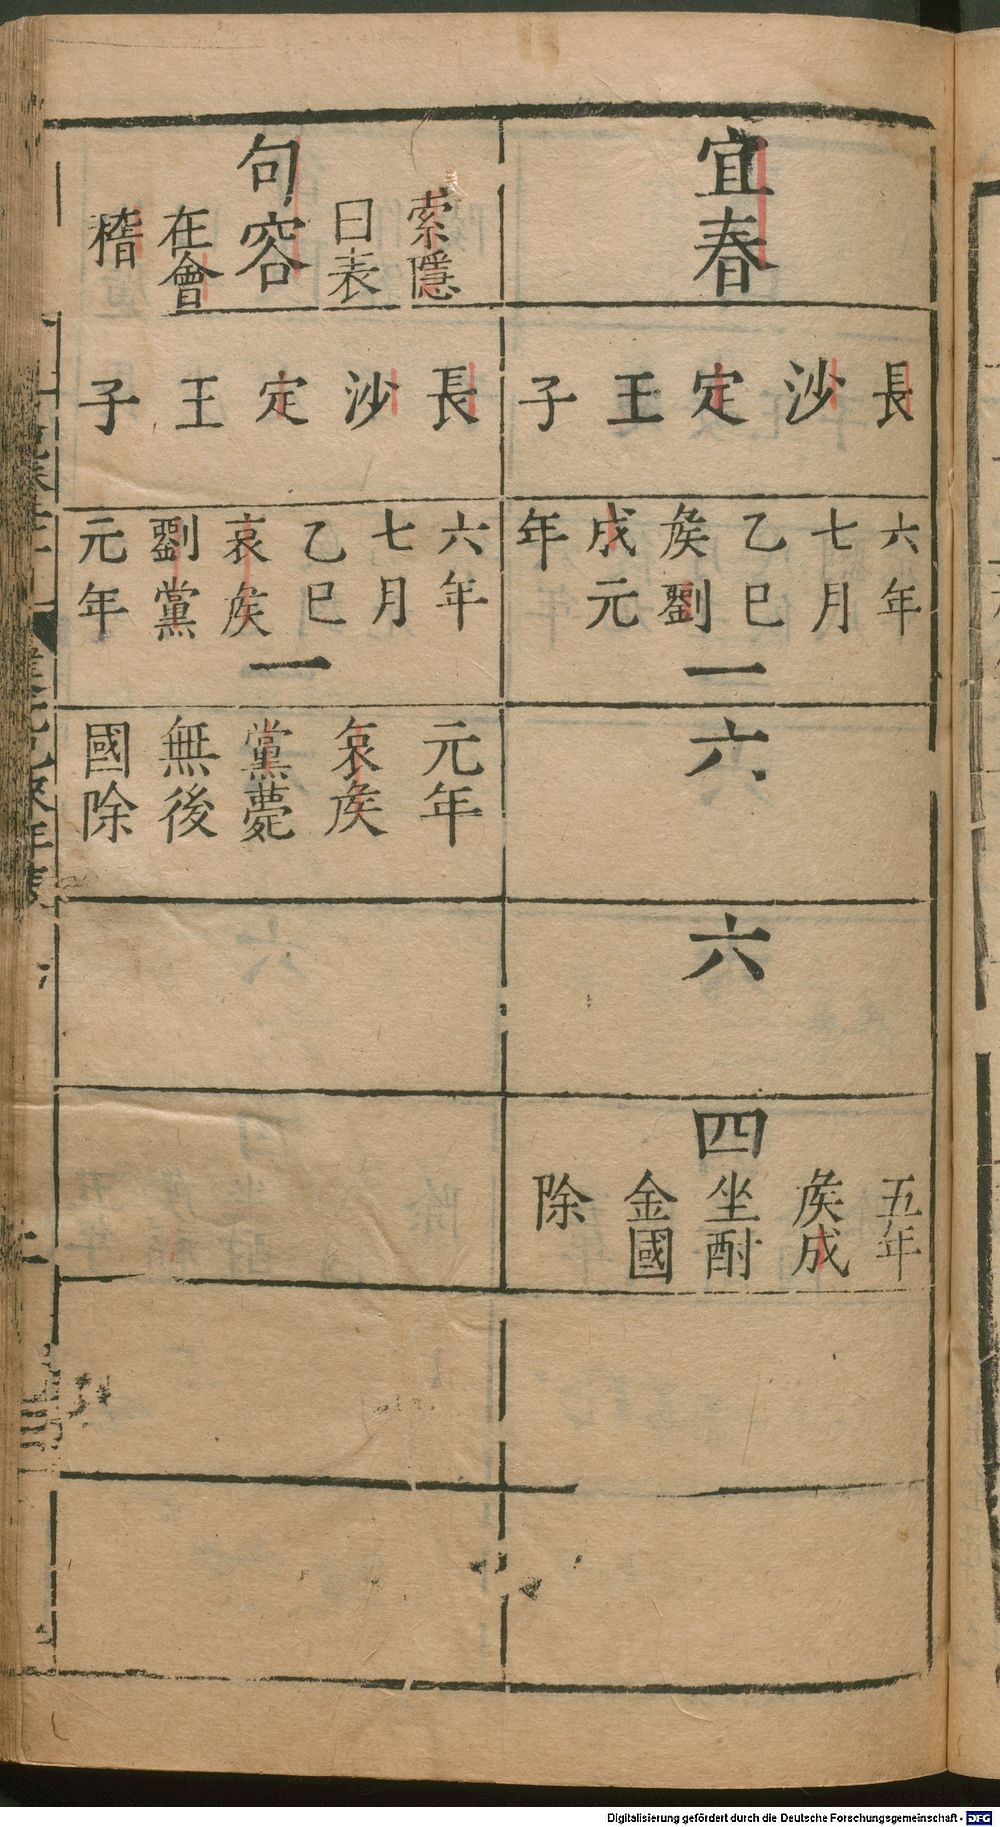 宜春
長沙定王子
六年
七月
乙巳
矦劉
成元
年
一
六
六
四
五年
矦成
坐酎
金國
除
句容
索隱
曰表
在會
稽
長沙定王子
六年
七月
乙巳
哀矦
劉黨
元年
一
元年
哀矦
黨薨
無後
國除
Digitalisierung gefördert durch die Deutsche Forschungsgemeinschaft - DFG